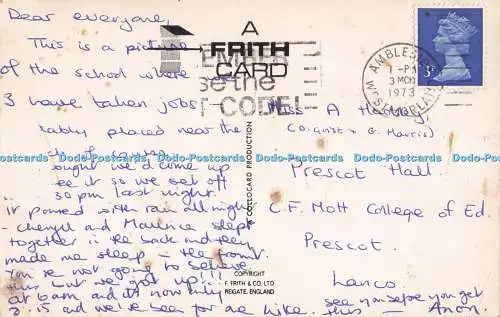 Dear everyone,
This is a picture
of the school where
3 have taken jobs —
placed near the
ought we'd come up
see it so we set off
30 pm last night.
It poured with rain all night
— Cheryl and Maurice slept
together in the back and they
made me sleep in the front.
You're not going to believe
this but we got up!!!
at 6am, and it's now only
and we've been for one hike.
A
FRITH
CARD
se the
T CODE!
AMBLESIDE
1-PM
3 MCH
1973
WESTMORLAND
3P
© COLLOCARD PRODUCTION
COPYRIGHT
F. FRITH & CO. LTD
REIGATE, ENGLAND
Miss A
Prescot Hall
C.F. Mott College of Ed.
Prescot.
Lancs
see you before you get
this — Anon.
Dodo-Postcards Dodo-Postcards Dodo-Postcards Dodo-Postcards Dodo-Postcards Dodo-Postcards